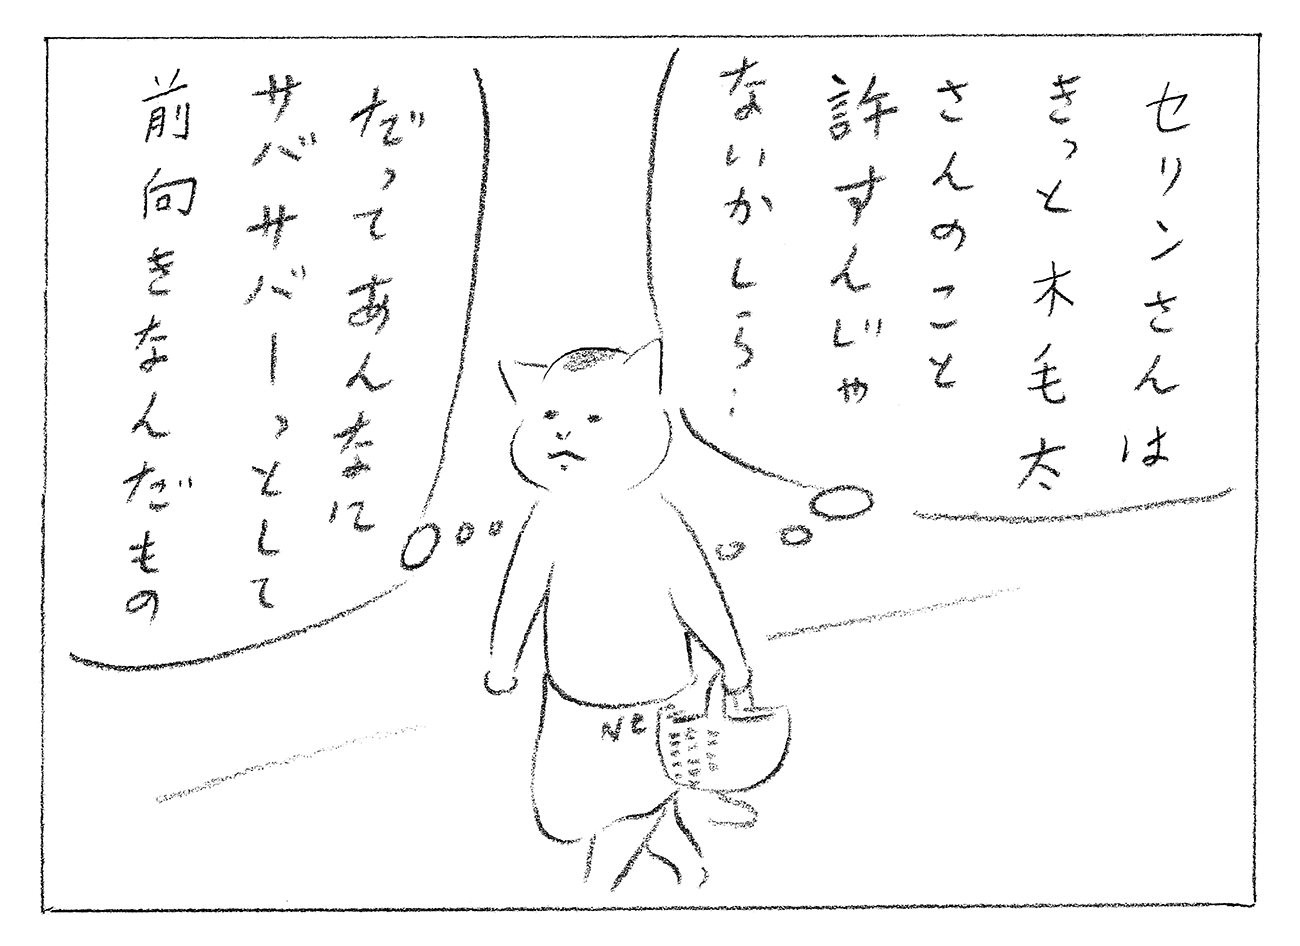 セリンさんは
きっと木毛太
さんのこと
許すんじゃ
ないかしら…
だってあんなに
サバサバーっとして
前向きなんだもの
Ne